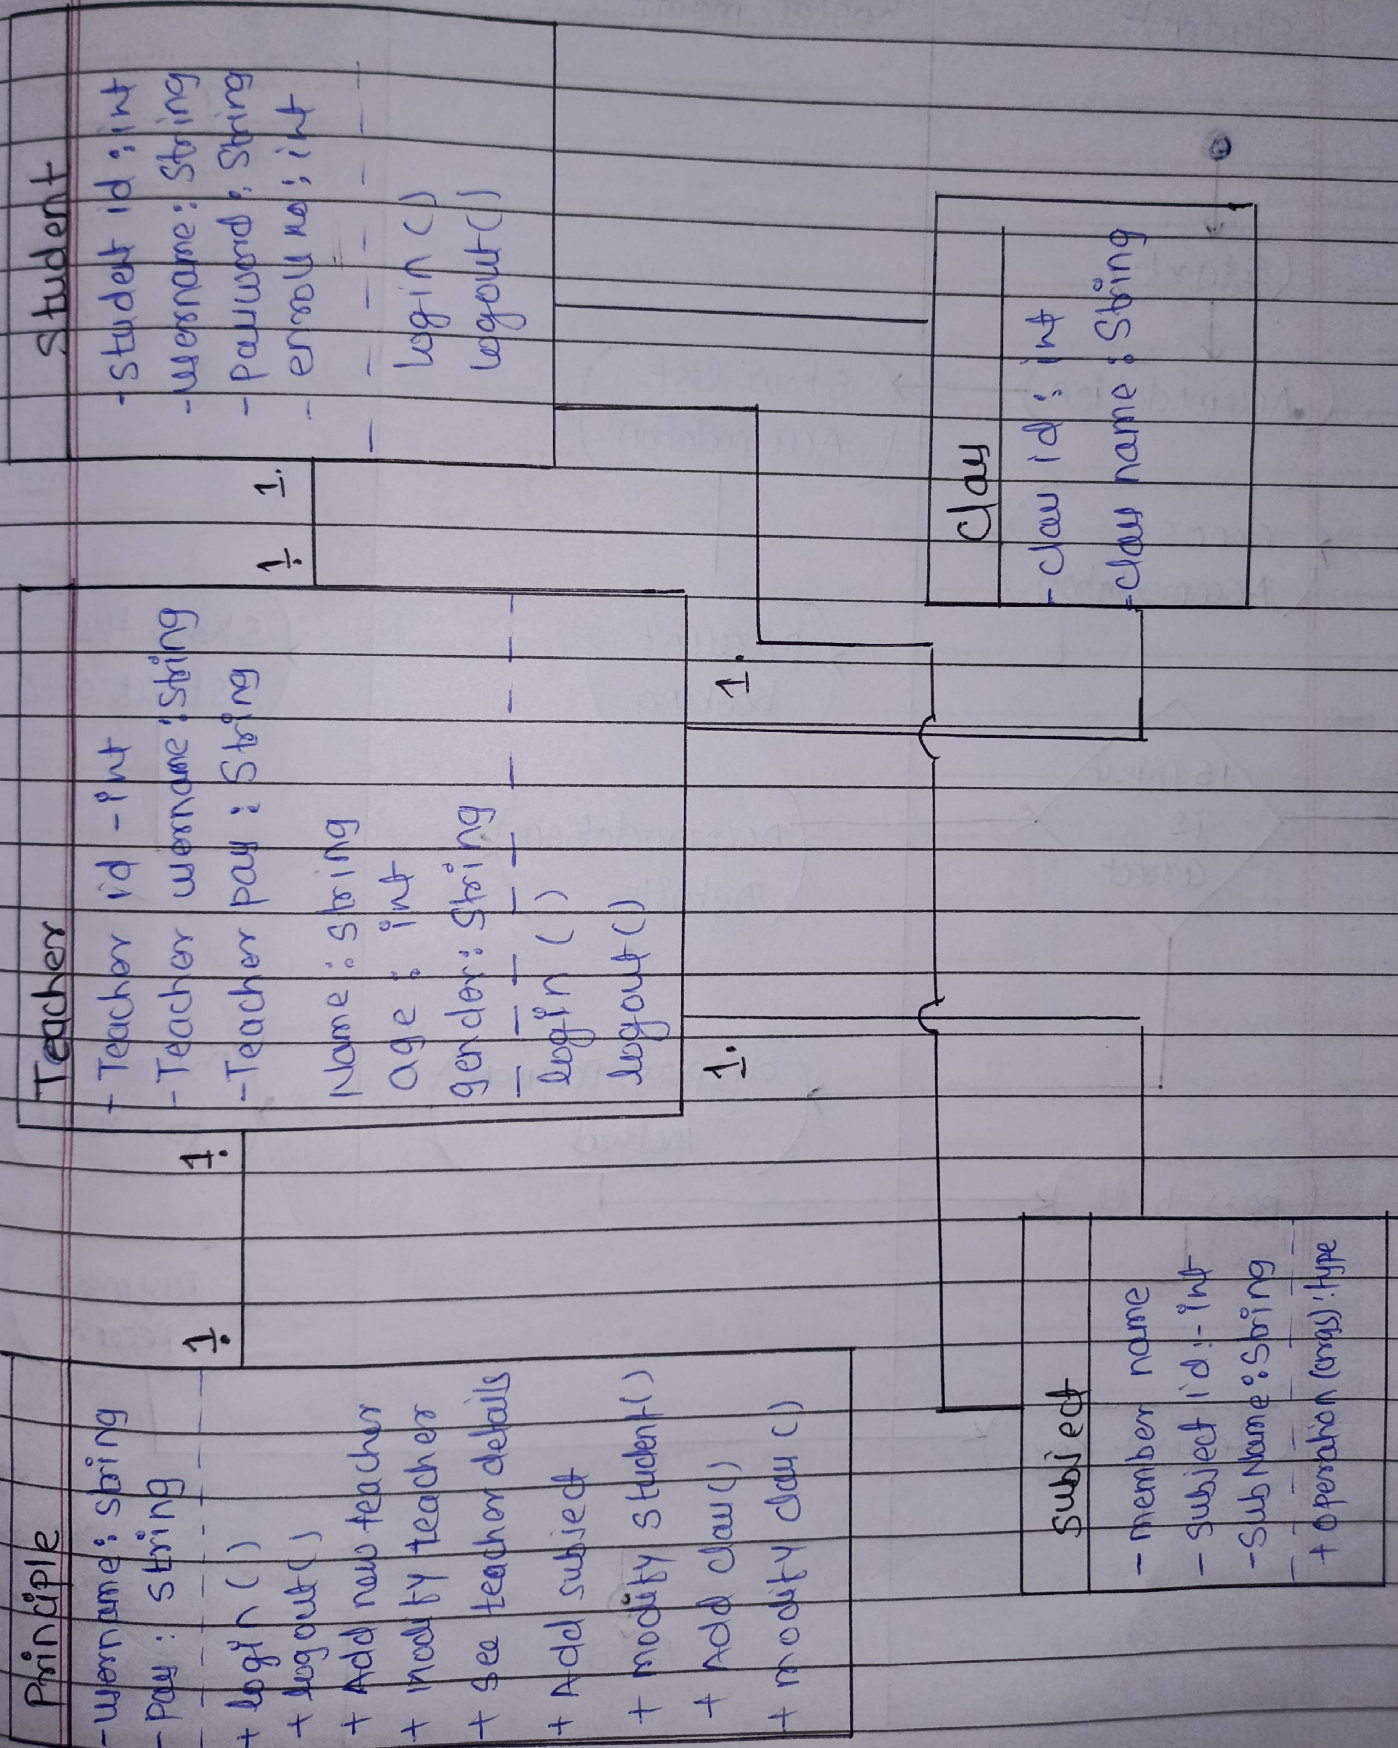 Principle
-username: string
-Pass: string
+ login()
+ logout()
+ Add new teacher
+ Modify teacher
+ See teacher details
+ Add subject
+ modify student()
+ Add class()
+ modify class()
1.
1.
Teacher
- Teacher id -int
- Teacher username: string
-Teacher pass: String
Name: string
age: int
gender: String
login()
logout()
1.
1.
1.
1.
Student
-student id: int
-username: String
-password: String
- enroll no: int
login()
logout()
Subject
- member name
- subject id:-int
-Sub Name: String
+ operation (args): type
Class
-class id: int
-class name: String